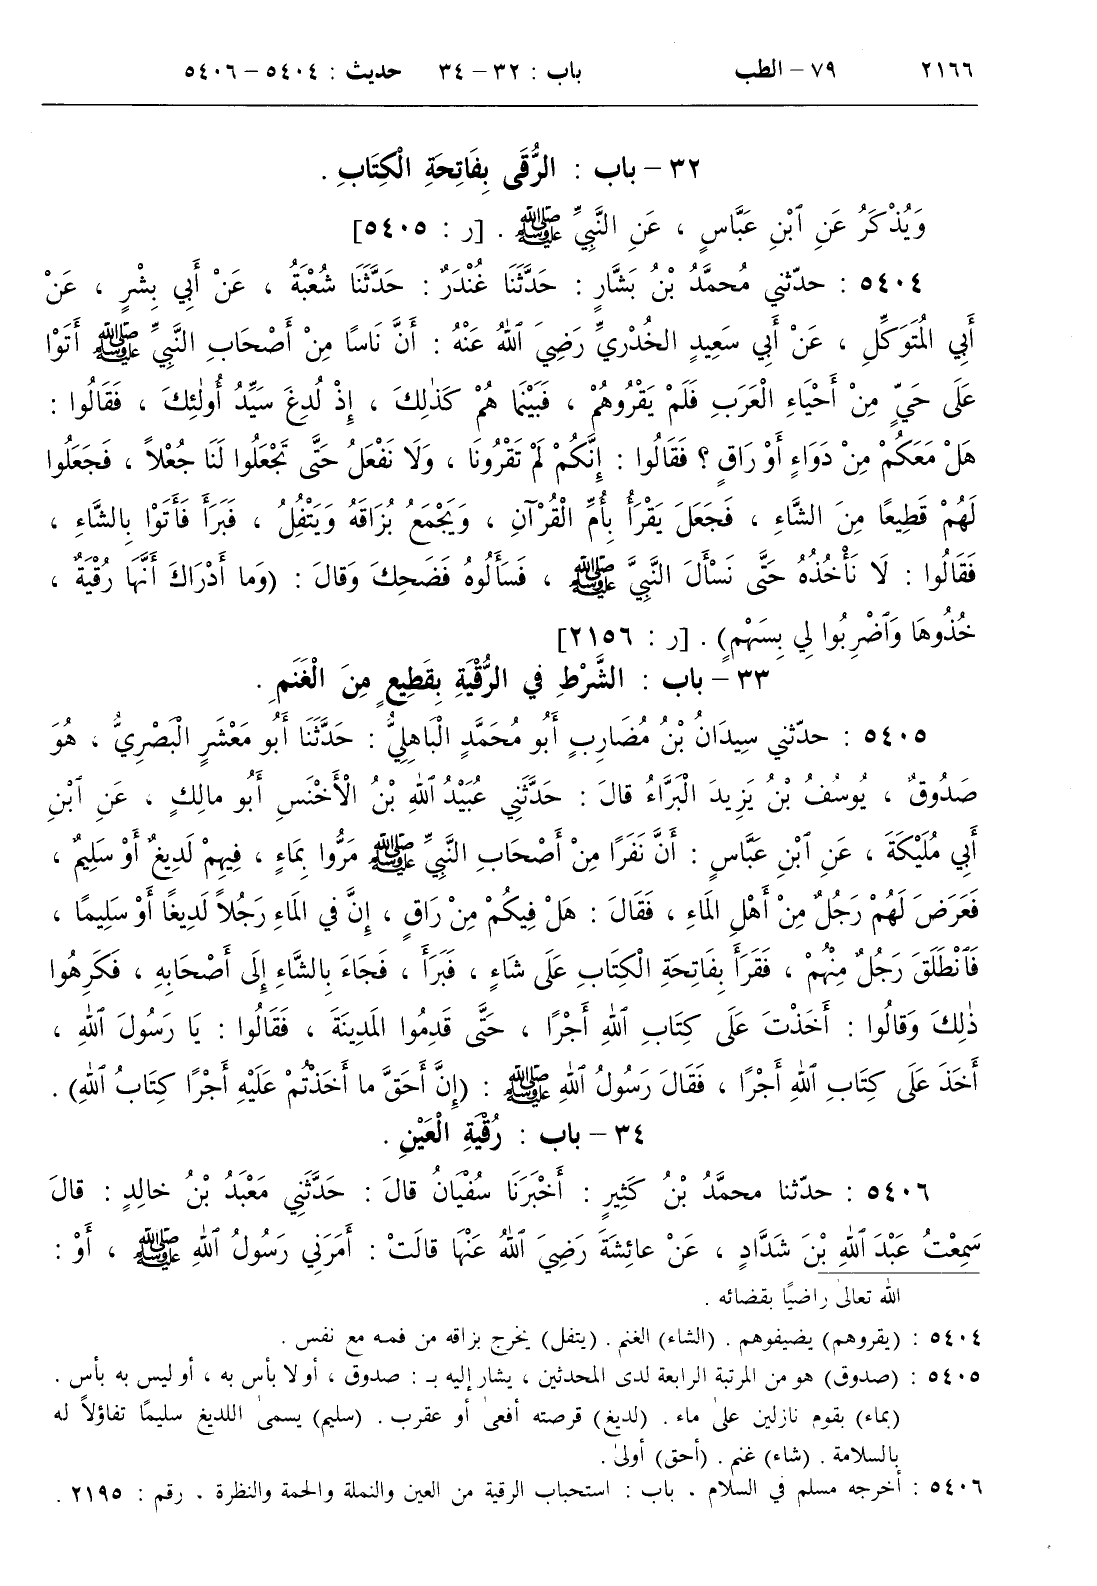 ٢١٦٦ ٧٩ – الطب باب : ٣٢ – ٣٤ حديث : ٥٤٠٤ – ٥٤٠٦
٣٢ – باب : الرُّقَى بِفَاتِحَةِ الْكِتَابِ .
وَيُذْكَرُ عَنِ ٱبْنِ عَبَّاسٍ ، عَنِ النَّبِيِّ ﷺ . [ر : ٥٤٠٥]
٥٤٠٤ : حدّثني مُحمَّدُ بْنُ بَشَّارٍ : حَدَّثَنَا غُنْدَرٌ : حَدَّثَنَا شُعْبَةُ ، عَنْ أَبِي بِشْرٍ ، عَنْ
أَبِي الْمُتَوَكِّلِ ، عَنْ أَبِي سَعِيدٍ الخُدْرِيِّ رَضِيَ ٱللهُ عَنْهُ : أَنَّ نَاسًا مِنْ أَصْحَابِ النَّبِيِّ ﷺ أَتَوْا
عَلَى حَيٍّ مِنْ أَحْيَاءِ الْعَرَبِ فَلَمْ يَقْرُوهُمْ ، فَبَيْنَمَا هُمْ كَذٰلِكَ ، إِذْ لُدِغَ سَيِّدُ أُولٰئِكَ ، فَقَالُوا :
هَلْ مَعَكُمْ مِنْ دَوَاءٍ أَوْ رَاقٍ ؟ فَقَالُوا : إِنَّكُمْ لَمْ تَقْرُونَا ، وَلَا نَفْعَلُ حَتَّى تَجْعَلُوا لَنَا جُعْلاً ، فَجَعَلُوا
لَهُمْ قَطِيعًا مِنَ الشَّاءِ ، فَجَعَلَ يَقْرَأُ بِأُمِّ الْقُرْآنِ ، وَيَجْمَعُ بُزَاقَهُ وَيَتْفِلُ ، فَبَرَأَ فَأَتَوْا بِالشَّاءِ ،
فَقَالُوا : لَا نَأْخُذُهُ حَتَّى نَسْأَلَ النَّبِيَّ ﷺ ، فَسَأَلُوهُ فَضَحِكَ وَقالَ : (وَما أَدْرَاكَ أَنَّهَا رُقْيَةٌ ،
خُذُوهَا وَٱضْرِبُوا لِي بِسَهْمٍ) . [ر : ٢١٥٦]
٣٣ – باب : الشَّرْطِ في الرُّقْيَةِ بِقَطِيعٍ مِنَ الْغَنَمِ .
٥٤٠٥ : حدّثني سِيدَانُ بْنُ مُضَارِبٍ أَبُو مُحَمَّدٍ الْبَاهِلِيُّ : حَدَّثَنَا أَبُو مَعْشَرٍ الْبَصْرِيُّ ، هُوَ
صَدُوقٌ ، يُوسُفُ بْنُ يَزِيدَ الْبَرَّاءُ قالَ : حَدَّثَنِي عُبَيْدُ ٱللهِ بْنُ الْأَخْنَسِ أَبُو مالِكٍ ، عَنِ ٱبْنِ
أَبِي مُلَيْكَةَ ، عَنِ ٱبْنِ عَبَّاسٍ : أَنَّ نَفَرًا مِنْ أَصْحَابِ النَّبِيِّ ﷺ مَرُّوا بِمَاءٍ ، فِيهِمْ لَدِيغٌ أَوْ سَلِيمٌ ،
فَعَرَضَ لَهُمْ رَجُلٌ مِنْ أَهْلِ المَاءِ ، فَقَالَ : هَلْ فِيكُمْ مِنْ رَاقٍ ، إِنَّ في المَاءِ رَجُلاً لَدِيغًا أَوْ سَلِيمًا ،
فَٱنْطَلَقَ رَجُلٌ مِنْهُمْ ، فَقَرَأَ بِفَاتِحَةِ الْكِتَابِ عَلَى شَاءٍ ، فَبَرَأَ ، فَجَاءَ بِالشَّاءِ إِلَى أَصْحَابِهِ ، فَكَرِهُوا
ذٰلِكَ وَقالُوا : أَخَذْتَ عَلَى كِتَابِ ٱللهِ أَجْرًا ، حَتَّى قَدِمُوا المَدِينَةَ ، فَقَالُوا : يَا رَسُولَ ٱللهِ ،
أَخَذَ عَلَى كِتَابِ ٱللهِ أَجْرًا ، فَقَالَ رَسُولُ ٱللهِ ﷺ : (إِنَّ أَحَقَّ ما أَخَذْتُمْ عَلَيْهِ أَجْرًا كِتَابُ ٱللهِ) .
٣٤ – باب : رُقْيَةِ الْعَيْنِ .
٥٤٠٦ : حدّثنا محمَّدُ بْنُ كَثِيرٍ : أَخْبَرَنَا سُفْيَانُ قالَ : حَدَّثَنِي مَعْبَدُ بْنُ خالِدٍ : قالَ
سَمِعْتُ عَبْدَ ٱللهِ بْنَ شَدَّادٍ ، عَنْ عائِشَةَ رَضِيَ ٱللهُ عَنْهَا قالَتْ : أَمَرَنِي رَسُولُ ٱللهِ ﷺ ، أَوْ :
الله تعالىٰ راضيًا بقضائه .
٥٤٠٤ : (يقروهم) يضيفوهم . (الشاء) الغنم . (يتفل) يخرج بزاقه من فمه مع نفس .
٥٤٠٥ : (صدوق) هو من المرتبة الرابعة لدى المحدثين ، يشار إليه بـ : صدوق ، أو لا بأس به ، أو ليس به بأس .
(بماء) بقوم نازلين علىٰ ماء . (لديغ) قرصته أفعىٰ أو عقرب . (سليم) يسمىٰ اللديغ سليمًا تفاؤلاً له
بالسلامة . (شاء) غنم . (أحق) أولىٰ .
٥٤٠٦ : أخرجه مسلم في السلام . باب : استحباب الرقية من العين والنملة والحمة والنظرة . رقم : ٢١٩٥ .